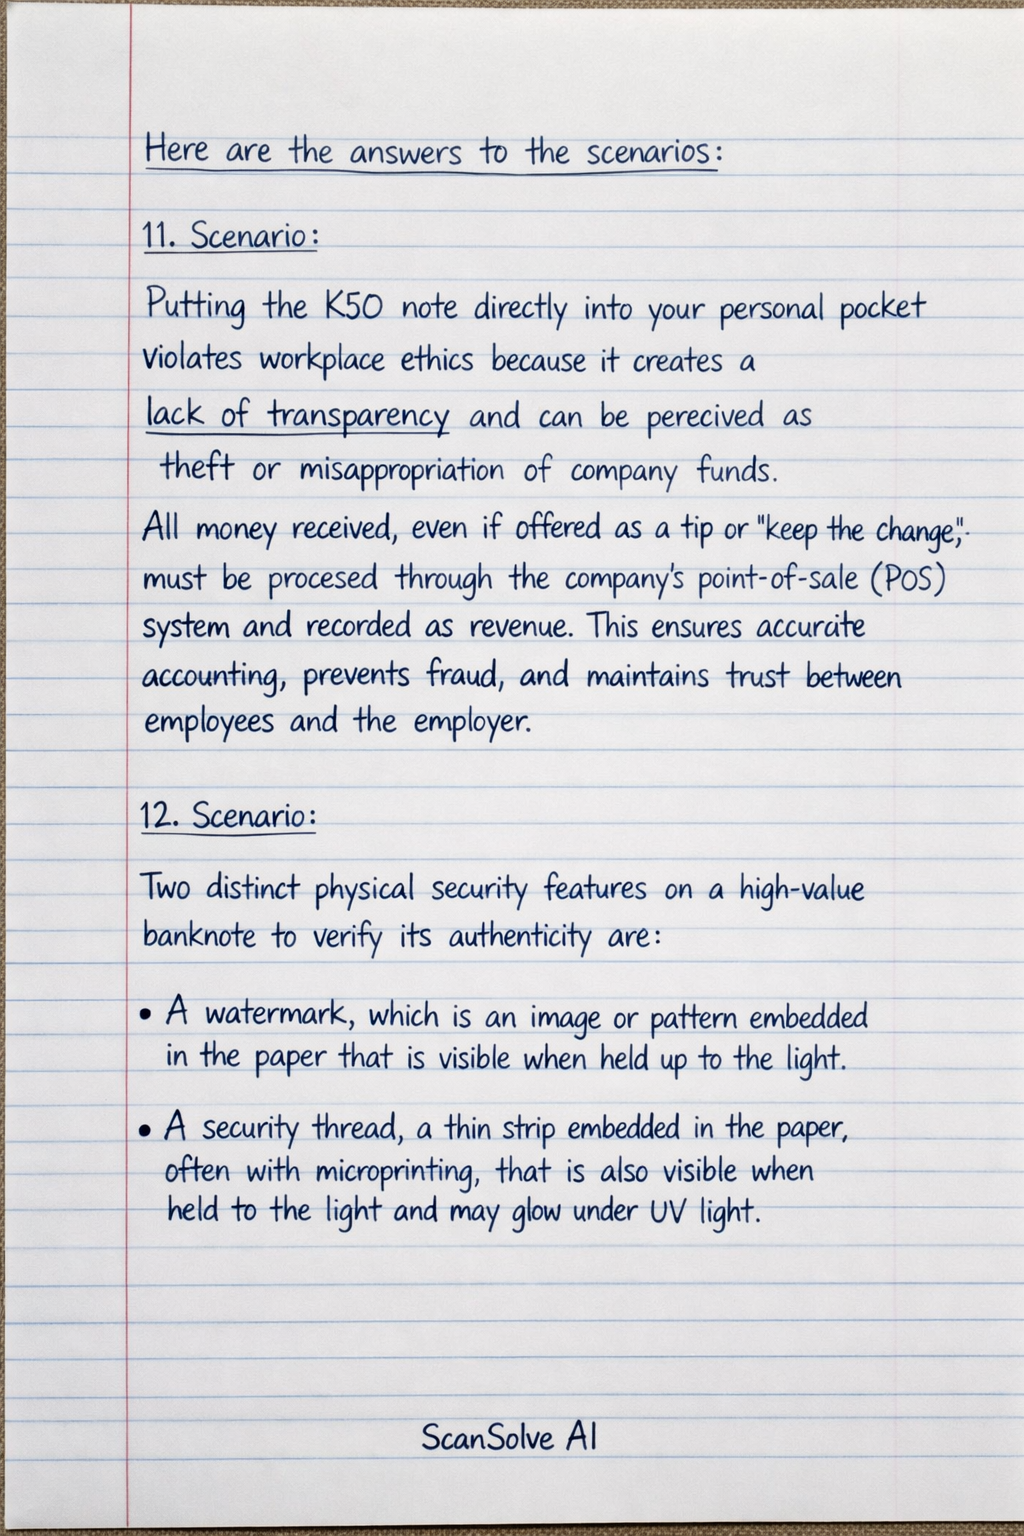 Here are the answers to the scenarios:
11. Scenario:
Putting the K50 note directly into your personal pocket
violates workplace ethics because it creates a
lack of transparency and can be perecived as
theft or misappropriation of company funds.
All money received, even if offered as a tip or "keep the change",.
must be procesed through the company's point-of-sale (POS)
system and recorded as revenue. This ensures accurcite
accounting, prevents fraud, and maintains trust between
employees and the employer.
12. Scenario:
Two distinct physical security features on a high-value
banknote to verify its authenticity are:
• A watermark, which is an image or pattern embedded
in the paper that is visible when held up to the light.
• A security thread, a thin strip embedded in the paper,
often with microprinting, that is also visible when
held to the light and may glow under UV light.
ScanSolve AI